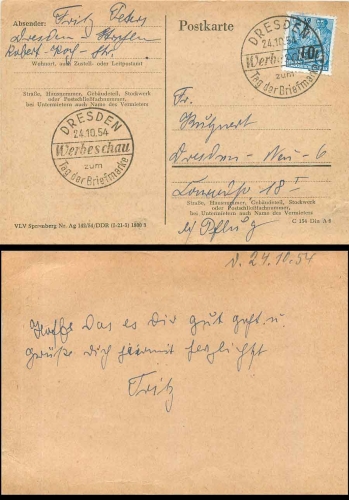 Absender: Fritz Peters
Dresden-
Robert-Koch-Str.
Wohnort, auch Zustell- oder Leitpostamt
Straße, Hausnummer, Gebäudeteil, Stockwerk
oder Postschließfachnummer,
bei Untermietern auch Name des Vermieters
DRESDEN
24.10.54
Werbeschau
zum
Tag der Briefmarke
VLV Spremberg Nr. Ag 
Postkarte
DRESDEN
24.10.54
Werbeschau
zum
Tag der Briefmarke
10
Fr.
Dresden-Neu-6
18 I
Straße, Hausnummer, Gebäudeteil, Stockwerk
oder Postschließfachnummer,
bei Untermietern auch Name des Vermieters
b/ Pflug
C 154 Din A 6
d. 24.10.54
Hoffe das es Dir gut geht u.
grüße dich hiermit herzlichst
Fritz